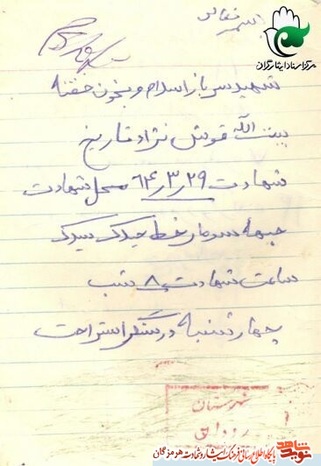 مرکز اسناد ایثارگران
شهید سرباز اسلام و بخون خفته
بیت الله قوش نژاد تاریخ
شهادت ۶۴٫۳٫۲۹ محل شهادت
جبهه سومار خط
ساعت شهادت ۸ شب
چهارشنبه در سنگر استراحت
شهرستان
نوید شاهد
پایگاه اطلاع رسانی فرهنگ ایثار و شهادت هرمزگان